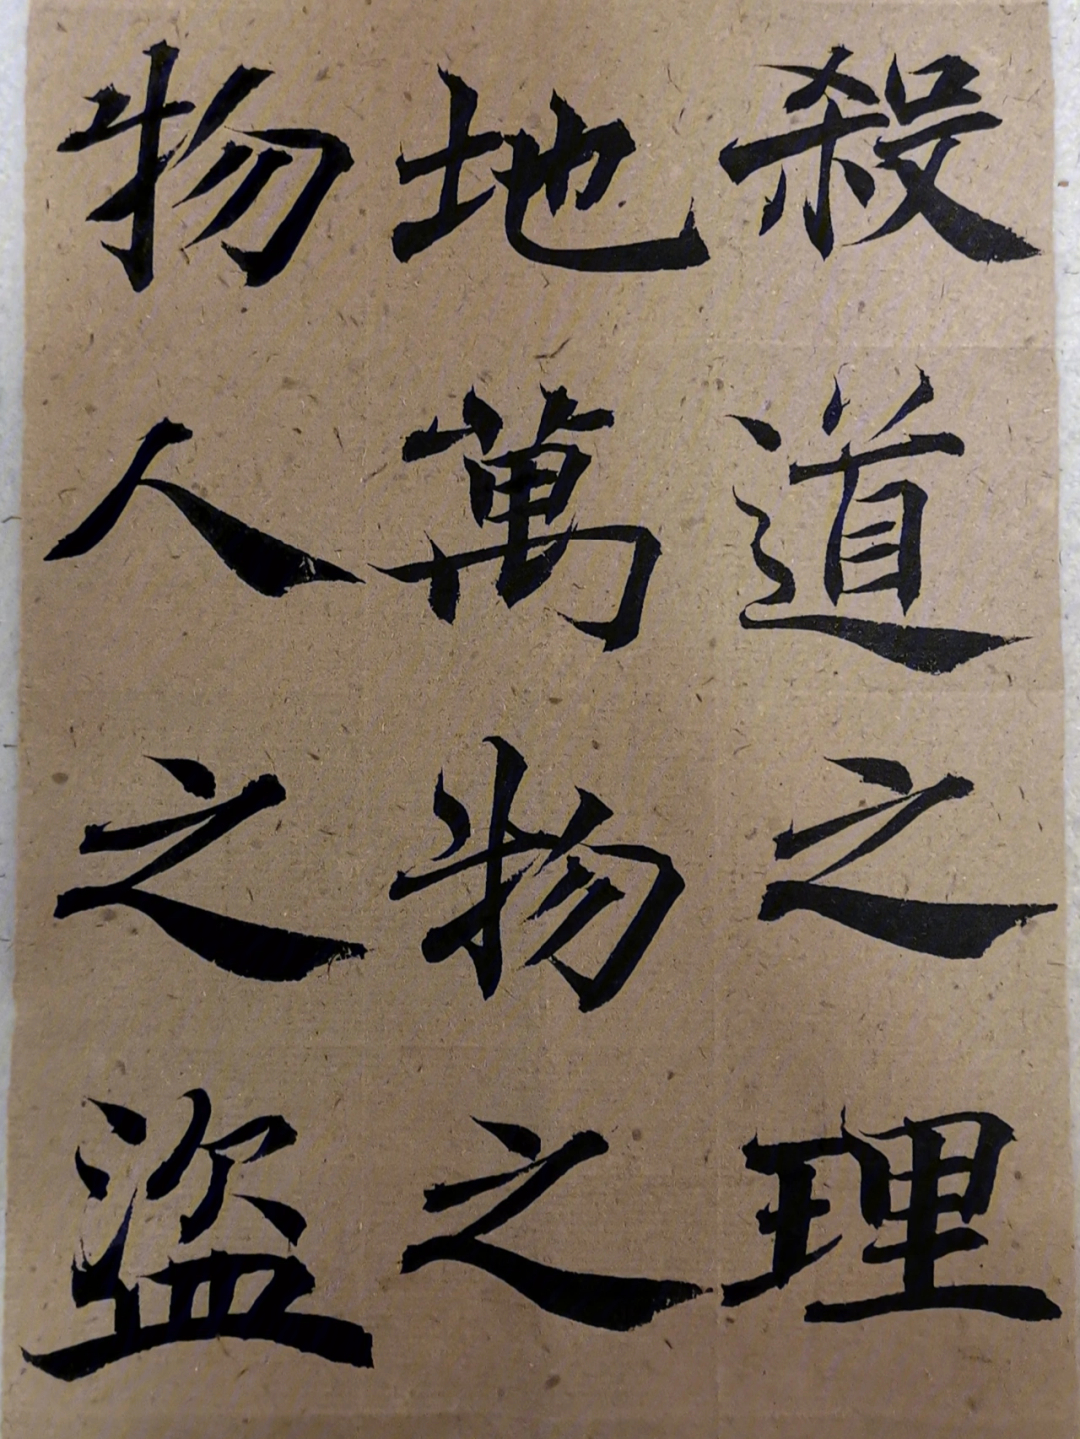 殺道之理
地萬物之
物人之盜